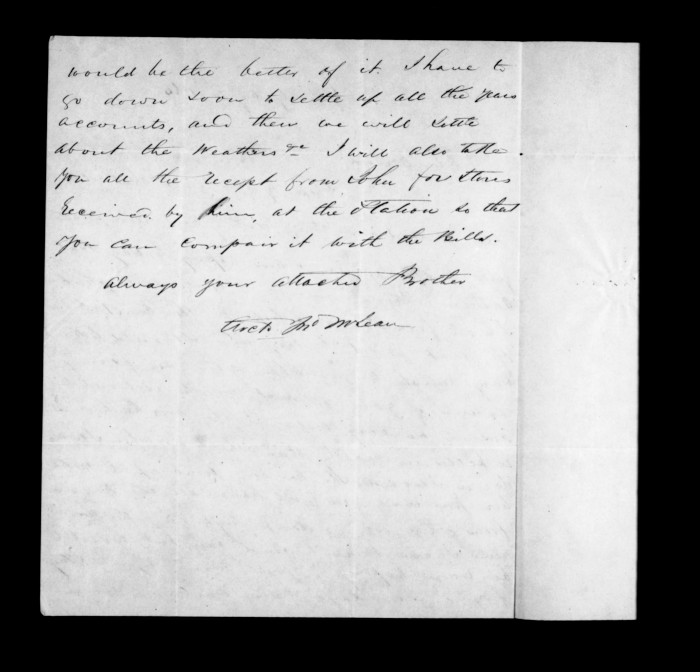 would be the better of it. I have to
go down soon to settle up all the years
accounts, and then we will settle
about the Weathers &c I will also take
you all the recept from John for Stores
Received by him, at the Station so that
you can compair it with the Bills.
Always your attached Brother
Arch Jno McLean